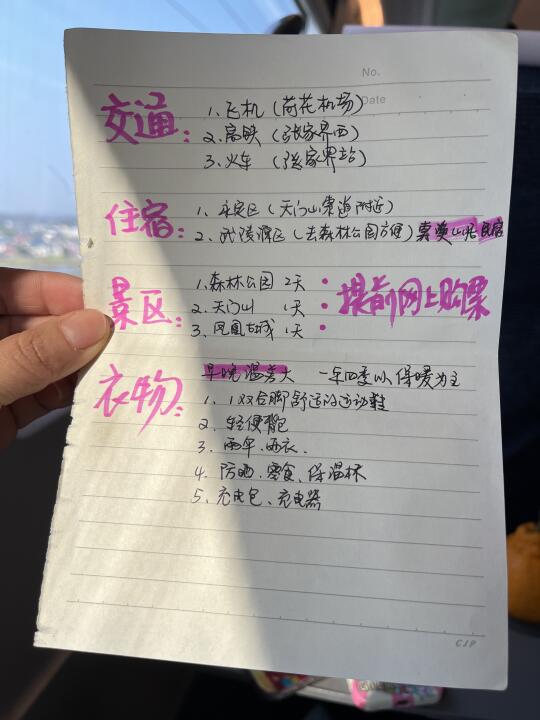 No.
Date
交通:
1、飞机(荷花机场)
2、高铁(张家界西)
3、火车(张家界站)
住宿:
1、永定区(天门山索道附近)
2、武陵源区(去森林公园方便)
民宿
景区:
1、森林公园 2天
2、天门山 1天
3、凤凰古城 1天
提前网上购票
衣物:
早晚温差大 一年四季以保暖为主
1、1双合脚舒适的运动鞋
2、轻便背包
3、雨伞、雨衣、
4、防晒、零食、保温杯
5、充电包、充电器